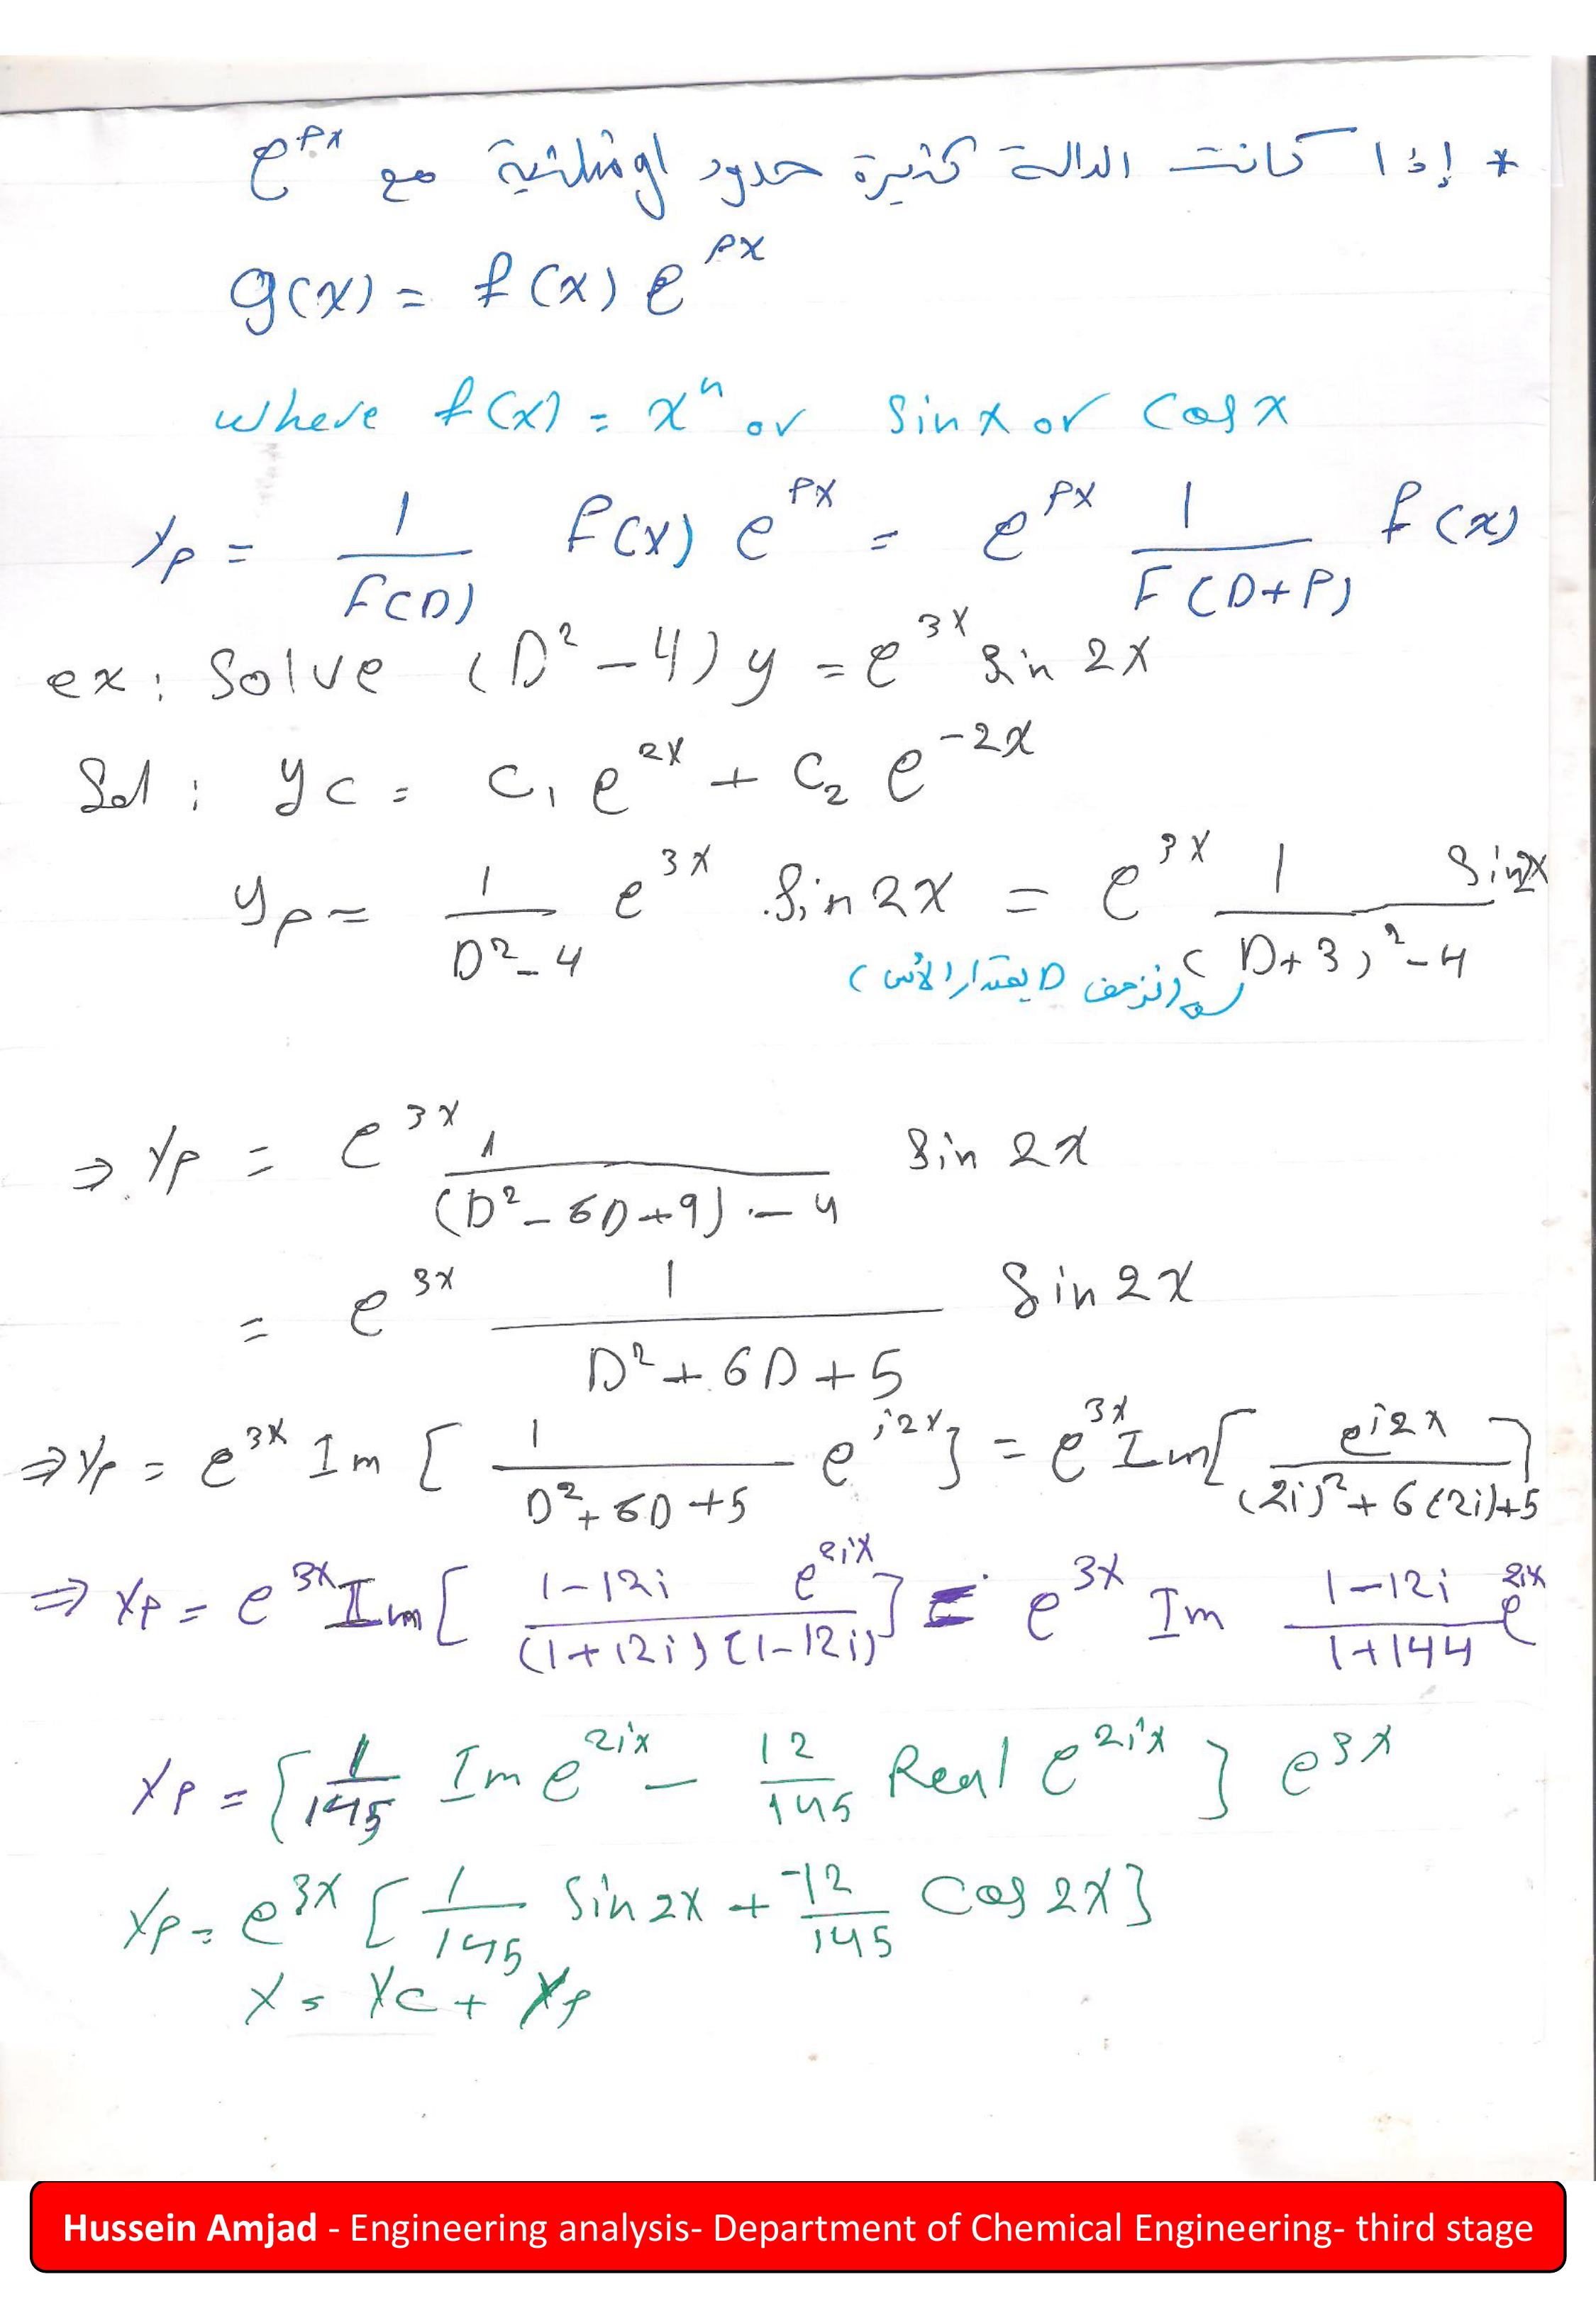 * إذا كانت الدالة كثيرة حدود او مثلثية مع e^{px}
g(x) = f(x) e^{px}
where f(x) = x^n or sin x or cos x
y_p = 1/F(D) f(x) e^{px} = e^{px} 1/F(D+P) f(x)
ex: Solve (D^2 - 4) y = e^{3x} sin 2x
Sol: y_c = c_1 e^{2x} + c_2 e^{-2x}
y_p = 1/(D^2 - 4) e^{3x} sin 2x = e^{3x} 1/((D+3)^2 - 4) sin 2x
(نزحف D بمقدار الأس)
⇒ y_p = e^{3x} 1/((D^2 - 6D + 9) - 4) sin 2x
= e^{3x} 1/(D^2 + 6D + 5) sin 2x
⇒ y_p = e^{3x} Im [ 1/(D^2 + 6D + 5) e^{i2x} ] = e^{3x} Im [ e^{i2x}/((2i)^2 + 6(2i) + 5) ]
⇒ y_p = e^{3x} Im [ (1-12i) e^{2ix}/((1+12i)(1-12i)) ] = e^{3x} Im (1-12i)/(1+144) e^{2ix}
y_p = [ 1/145 Im e^{2ix} - 12/145 Real e^{2ix} ] e^{3x}
y_p = e^{3x} [ 1/145 sin 2x + -12/145 cos 2x ]
y = y_c + y_p
Hussein Amjad - Engineering analysis- Department of Chemical Engineering- third stage